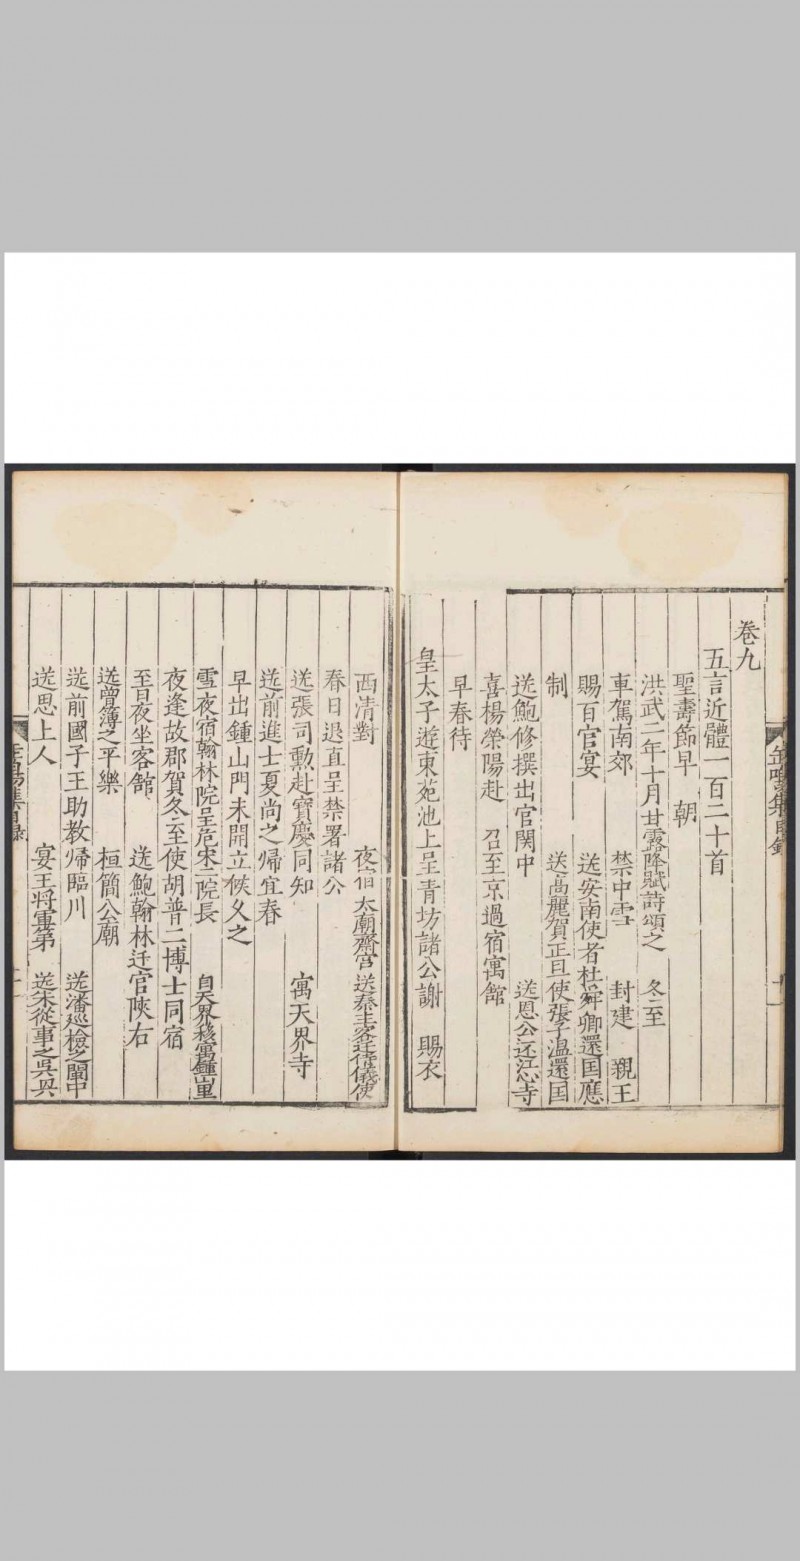 卷九
五言近體一百二十首
聖壽節早　朝
洪武二年十月甘露降賦詩頌之　冬至
車駕南郊　禁中雪　封建　親王
賜百官宴　送安南使者杜舜卿還国應
制　送高麗賀正旦使張子溫還国
送鮑修撰出官関中　送恩公还江心寺
喜楊榮陽赴　召至京過宿寓館
早春待
皇太子遊東苑池上呈青坊諸公謝　賜衣
西清對　夜宿　太廟齋宮　送秦主客迁侍儀使
春日退直呈禁署諸公
送張司勲赴寶慶同知　寓天界寺
送前進士夏尚之帰宜春
早出鍾山門未開立候久之
雪夜宿翰林院呈危宋二院長　自天界移寓鍾山里
夜逢故郡賀冬至使胡普二博士同宿
至日夜坐客館　送鮑翰林迁官陝右
送曾簿之平樂　桓簡公廟
送前國子王助教帰臨川　送潘廵檢之閩中
送思上人　宴王將軍第　送宋從事之吳兴